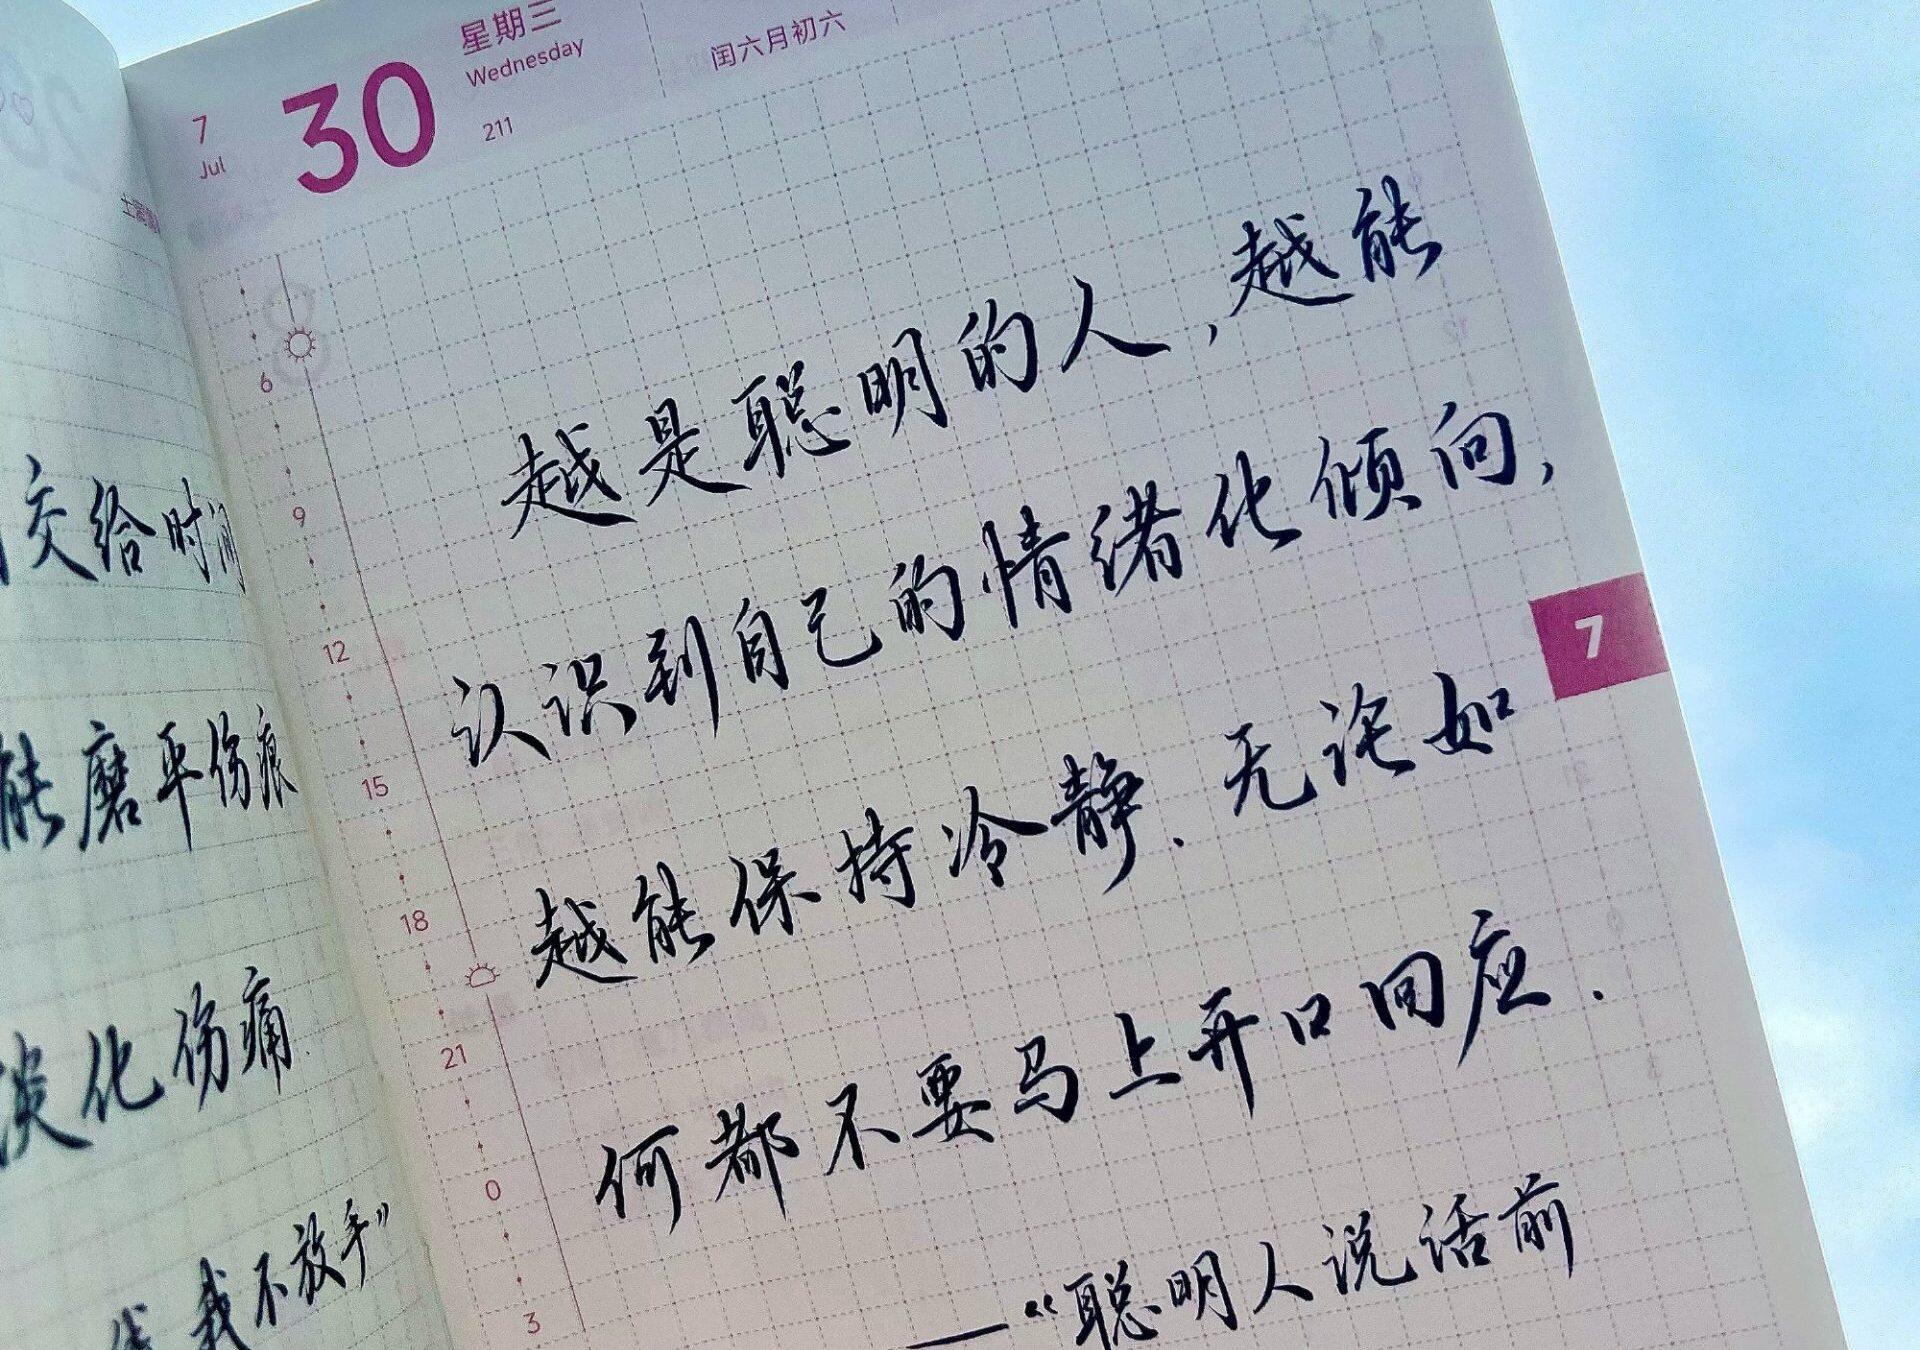 7
Jul
30
星期三
Wednesday
211
闰六月初六
6
9
12
15
18
21
0
3
越是聪明的人，越能
认识到自己的情绪化倾向，
越能保持冷静。无论如
何都不要马上开口回应。
——“聪明人说话前
7
交给时间
能磨平伤痕
淡化伤痛
我不放手”